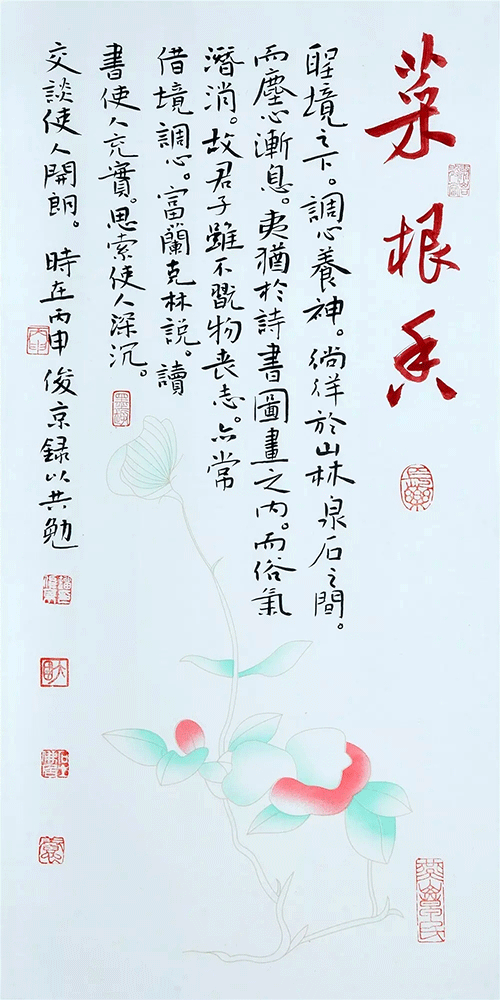 菜根香
聖境之下。調心養神。徜徉於山林泉石之間。
而塵心漸息。夷猶於詩書圖畫之内。而俗氣
潛消。故君子雖不翫物丧志。亦常
借境調心。富蘭克林説。讀
書使人充實。思索使人深沉。
交談使人開朗。時在丙申俊京録以共勉
丙申